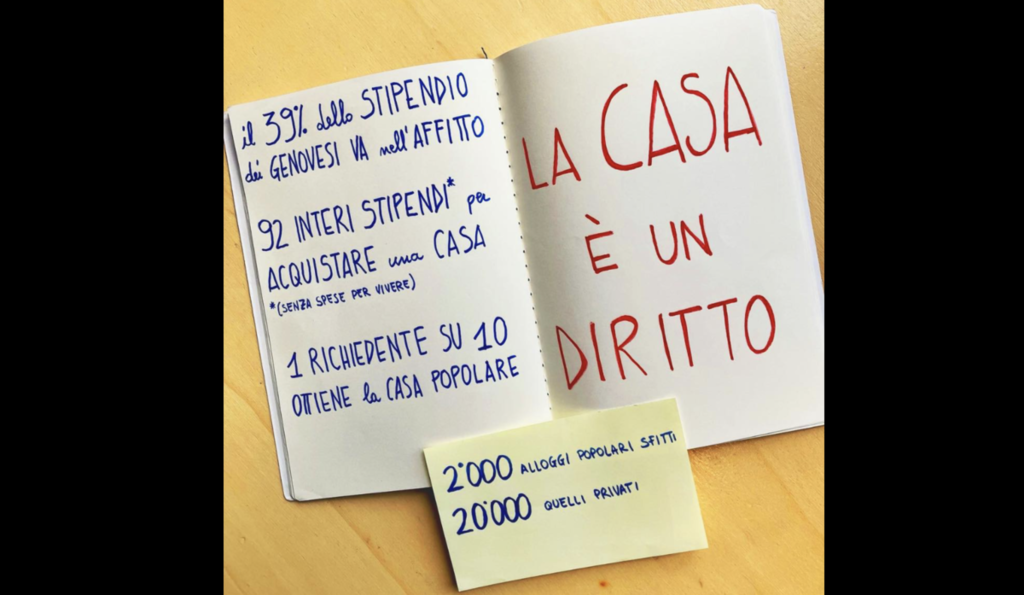 il 39% dello STIPENDIO
dei GENOVESI VA nell'AFFITTO
92 INTERI STIPENDI* per
ACQUISTARE una CASA
*(SENZA SPESE PER VIVERE)
1 RICHIEDENTE SU 10
OTTIENE la CASA POPOLARE
LA CASA
È UN
DIRITTO
2'000 ALLOGGI POPOLARI SFITTI
20'000 QUELLI PRIVATI